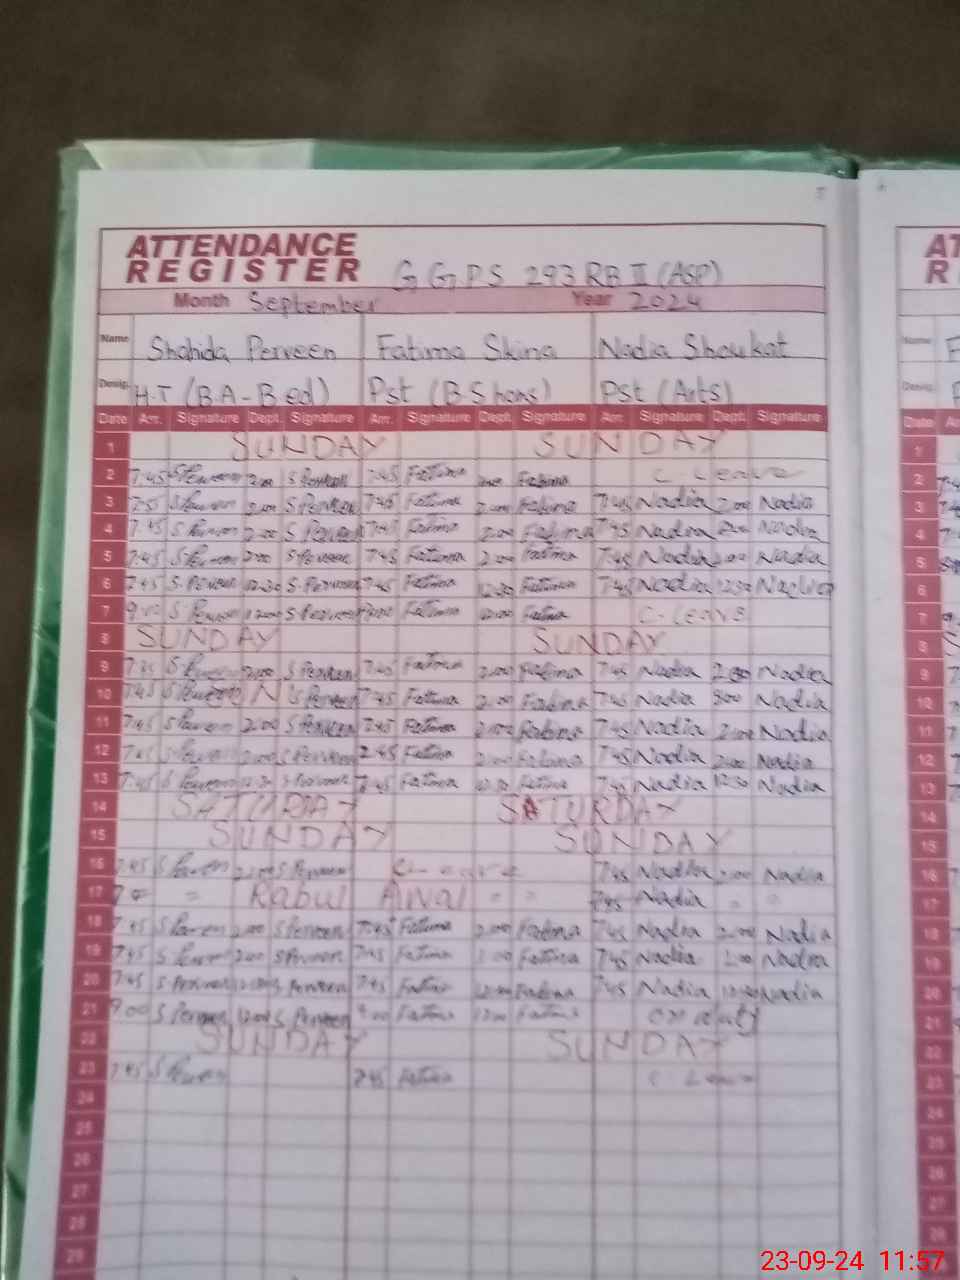 ATTENDANCE
REGISTER G G P S 293 RB II (ASP)
Month September Year 2024
Name Shahida Perveen Fatima Skina Nadia Shoukat
Desig. H.T (B.A-B.ed) Pst (B.S hons) Pst (Arts)
Date Arr. Signature Dept. Signature Arr. Signature Dept. Signature Arr. Signature Dept. Signature
1 SUNDAY SUNDAY
2 7:45 S Perveen 2:00 S Perveen 7:45 Fatima Fatima C Leave
3 7:55 S Perveen 2:00 S Perveen 7:45 Fatima 2:00 Fatima 7:45 Nadia 2:00 Nadia
4 7:45 S Perveen 2:00 S Perveen 7:45 Fatima 2:00 Fatima 7:45 Nadia 2:00 Nadia
5 7:45 S Perveen 2:00 S Perveen 7:45 Fatima 2:00 Fatima 7:45 Nadia 2:00 Nadia
6 7:45 S. Perveen 12:30 S. Perveen 7:45 Fatima 12:30 Fatima 7:45 Nadia 12:30 Nadia
7 9:00 S Perveen 12:00 S Perveen Fatima 12:00 Fatima C-Leave
8 SUNDAY SUNDAY
9 7:45 S Perveen 2:00 S Perveen 7:45 Fatima 2:00 Fatima 7:45 Nadia 2:00 Nadia
10 7:45 S Perveen S Perveen 7:45 Fatima 2:00 Fatima 7:45 Nadia Nadia
11 7:45 S Perveen 2:00 S Perveen 7:45 Fatima 2:00 Fatima 7:45 Nadia 2:00 Nadia
12 7:45 S Perveen 2:00 S Perveen 7:45 Fatima 2:00 Fatima 7:45 Nadia 2:00 Nadia
13 7:45 S Perveen 12:30 S Perveen 7:45 Fatima 12:30 Fatima 7:45 Nadia 12:30 Nadia
14 SATURDAY SATURDAY
15 SUNDAY SUNDAY
16 7:45 S Perveen 2:00 S Perveen 7:45 Nadia 2:00 Nadia
17 = Rabul Awal = = 7:45 Nadia = =
18 7:45 S Perveen 2:00 S Perveen 7:45 Fatima 2:00 Fatima 7:45 Nadia 2:00 Nadia
19 7:45 S Perveen 2:00 S Perveen 7:45 Fatima Fatima 7:45 Nadia Nadia
20 7:45 S Perveen S Perveen 7:45 Fatima Fatima 7:45 Nadia Nadia
21 9:00 S Perveen 12:00 S Perveen 9:00 Fatima 12:00 Fatima on duty
22 SUNDAY SUNDAY
23 7:45 S Perveen 7:45 Fatima C Leave
24
25
26
27
28
29
23-09-24 11:57